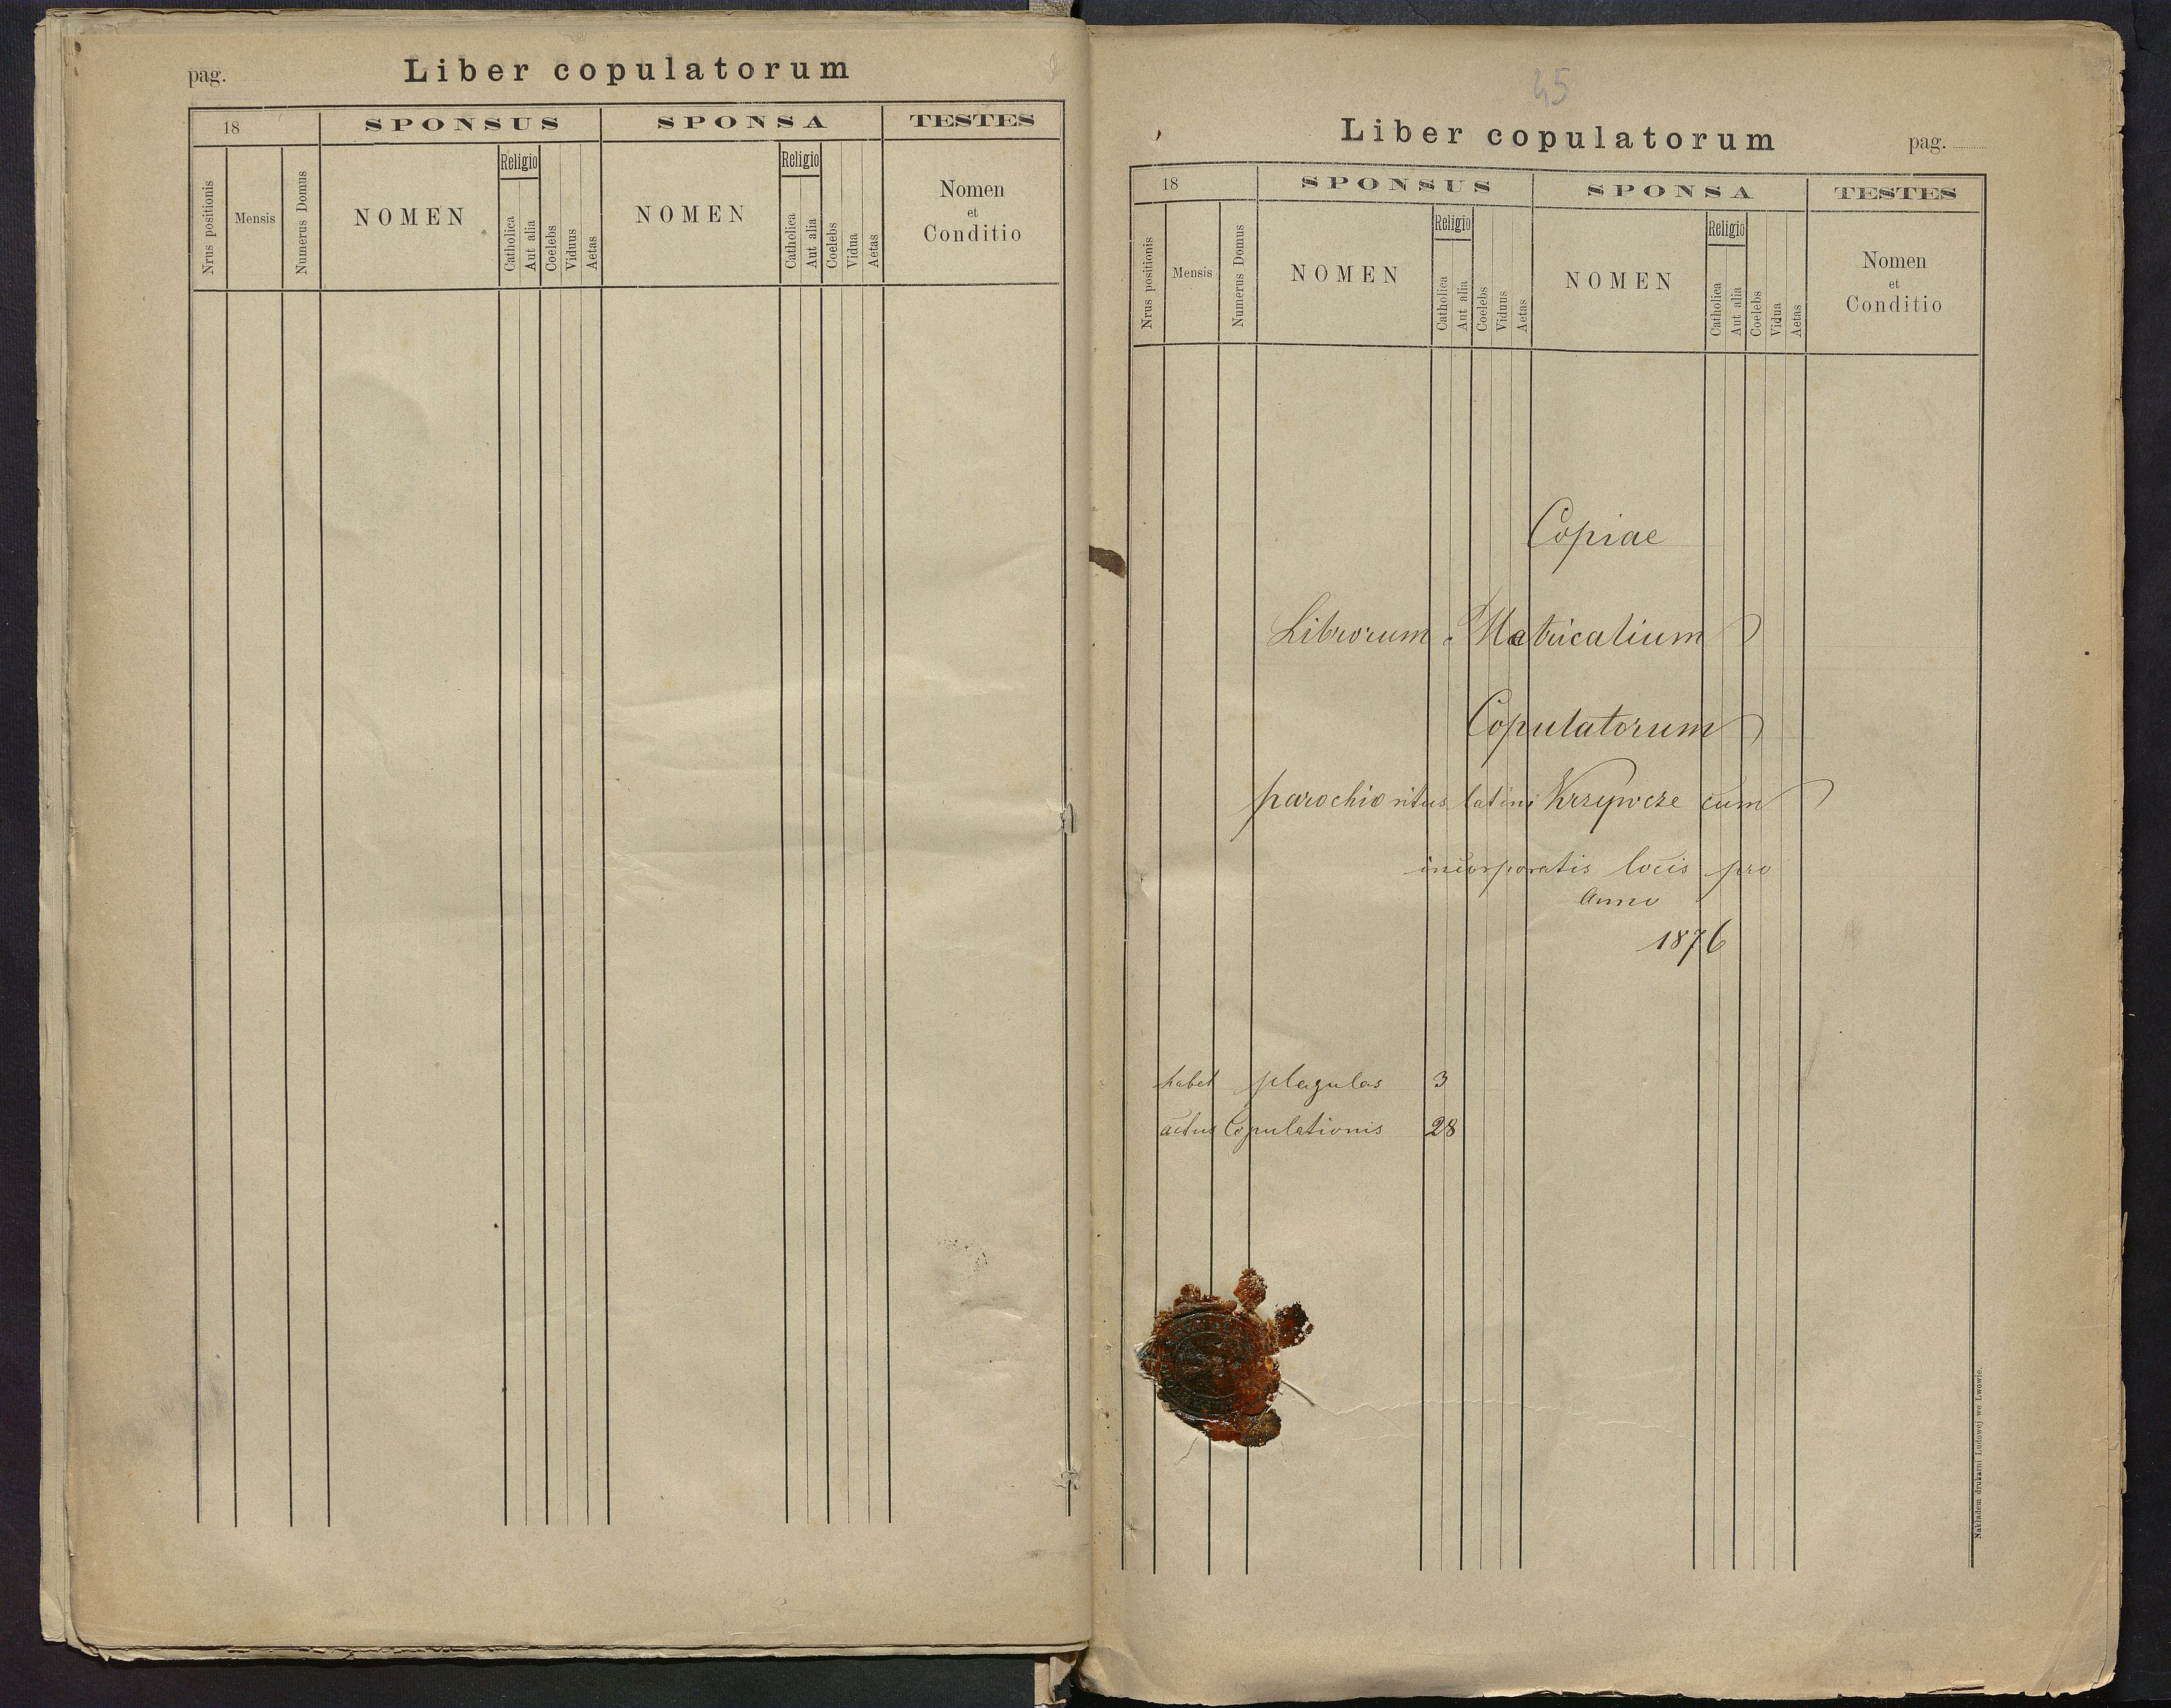 pag.
Liber copulatorum
18
SPONSUS
SPONSA
TESTES
Nrus positionis
Mensis
Numerus Domus
NOMEN
Religio
Catholica
Aut alia
Coelebs
Viduus
Aetas
NOMEN
Religio
Catholica
Aut alia
Coelebs
Vidua
Aetas
Nomen
et
Conditio
45
Liber copulatorum
pag.
18
SPONSUS
SPONSA
TESTES
Nrus positionis
Mensis
Numerus Domus
NOMEN
Religio
Catholica
Aut alia
Coelebs
Viduus
Aetas
NOMEN
Religio
Catholica
Aut alia
Coelebs
Vidua
Aetas
Nomen
et
Conditio
Copiae
Librorum Matricalium
Copulatorum
parochio ritus latini Krzywcze cum
incorporatis locis pro
Anno
1876
habet plagulas 3
actus Copulationis 28
Nakładem drukarni Ludowej we Lwowie.